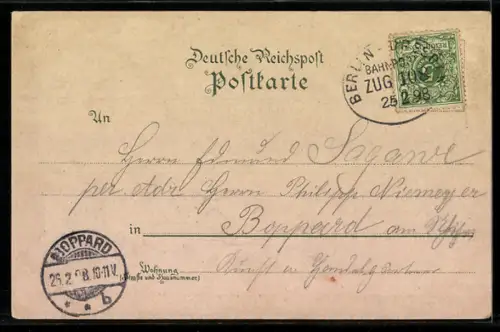 Deutsche Reichspost
Postkarte
BERLIN - DRES
BAHNPOST
ZUG 10
25 2 98
An
Herrn Edmund Sagawe
per Adr. Herrn Philipp Niemeyer
in Boppard am Rhein
Wohnung
(Straße und Hausnummer)
Kunst u.
BOPPARD
26.2.98.10-11V.
* * b